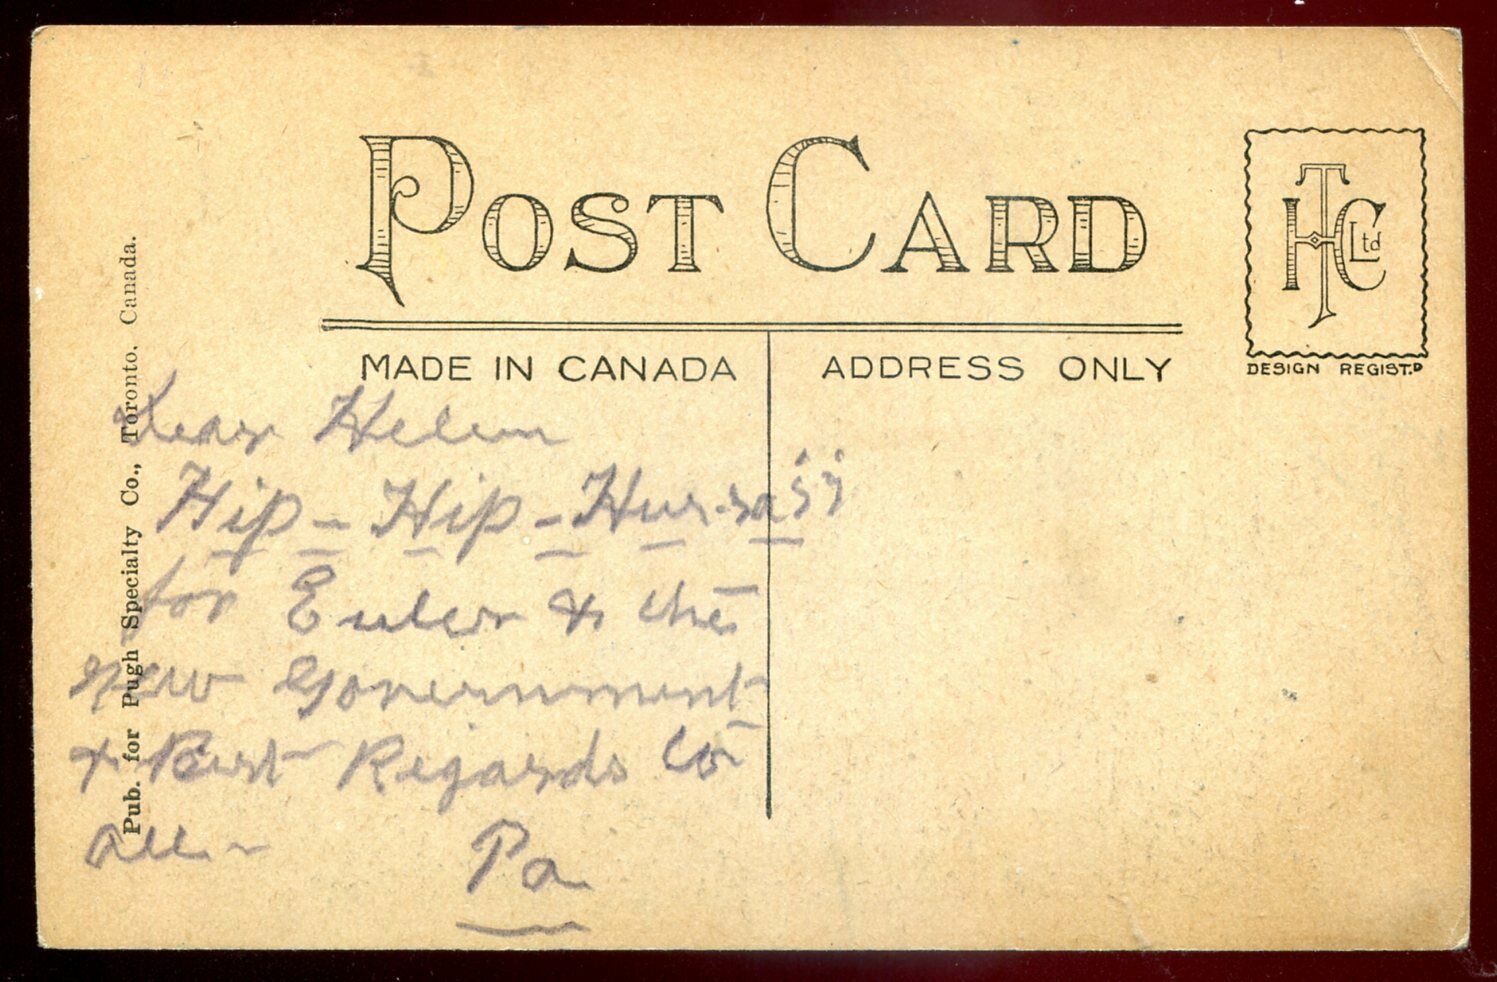 POST CARD
THC Ltd
MADE IN CANADA
ADDRESS ONLY
DESIGN REGIST.D
Pub. for Pugh Specialty Co., Toronto. Canada.
Dear Helen
Hip - Hip - Hurra!!
for Euler & the
new Government
& Best Regards to
all -
Pa